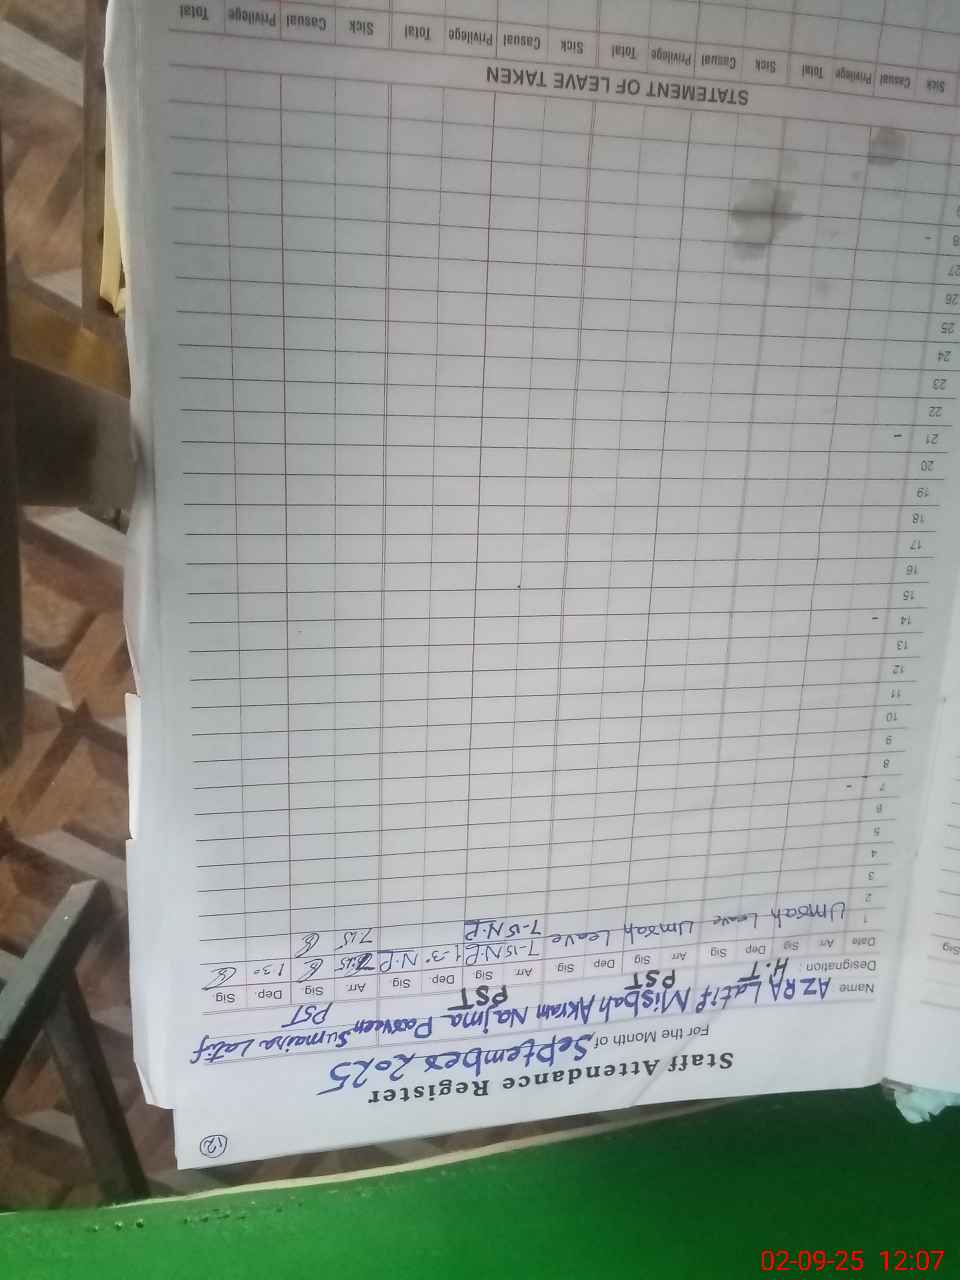 (12)
Staff Attendance Register
For the Month of September 2025
Name AZRA Latif Misbah Akram Najma Parveen Sumaira Latif
Designation : H.T PST PST PST
Date Arr Sig Dep Sig Arr Sig Dep Sig Arr Sig Dep Sig. Arr. Sig. Dep. Sig.
1 Umrah Leave Umrah Leave 7-15 N.P 1-30 N.P 7:15 1:30
2 7-15 N.P 7:15
3
4
5
6
7 -
8
9
10
11
12
13
14 -
15
16
17
18
19
20
21 -
22
23
24
25
26
27
8 -
STATEMENT OF LEAVE TAKEN
Sick Casual Privilege Total Sick Casual Privilege Total Sick Casual Privilege Total Sick Casual Privilege Total
Sig
02-09-25 12:07